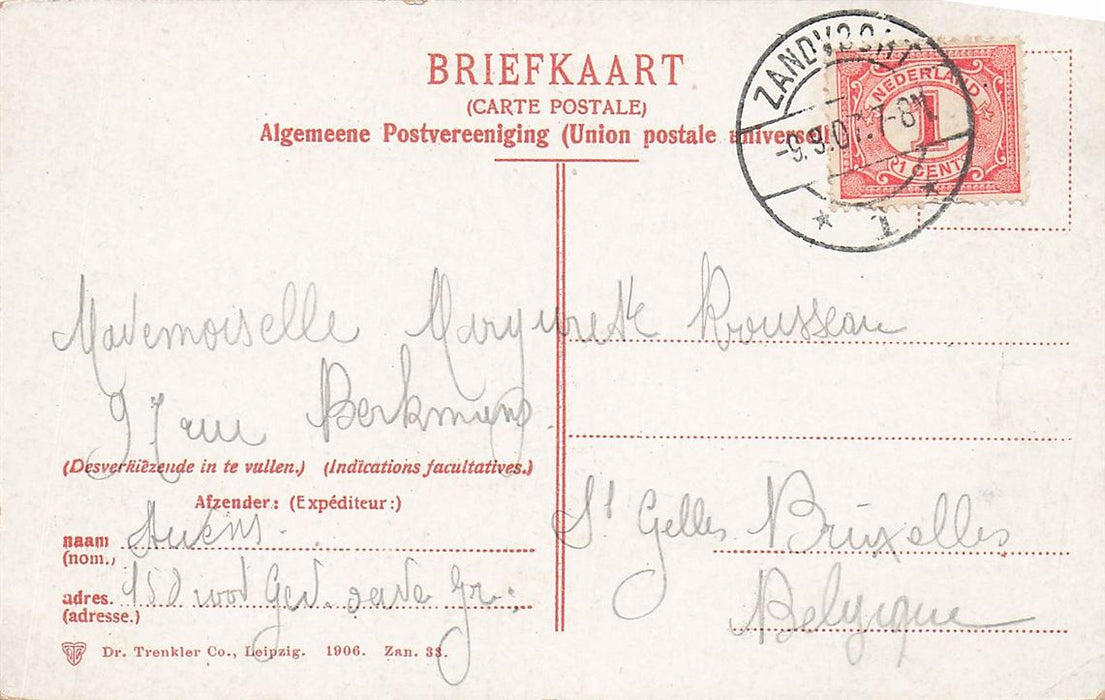 BRIEFKAART
(CARTE POSTALE)
Algemeene Postvereeniging (Union postale universelle)
ZANDVOORT
-9.9.07.7-8N.
1
NEDERLAND
1
1 CENT
Mademoiselle Marguerite Rousseau
97 rue Berkmans
St Gelles Bruxelles
Belgique
(Desverkiezende in te vullen.) (Indications facultatives.)
Afzender: (Expéditeur:)
naam
(nom.)
adres.
(adresse.)
Dr. Trenkler Co., Leipzig. 1906. Zan. 33.